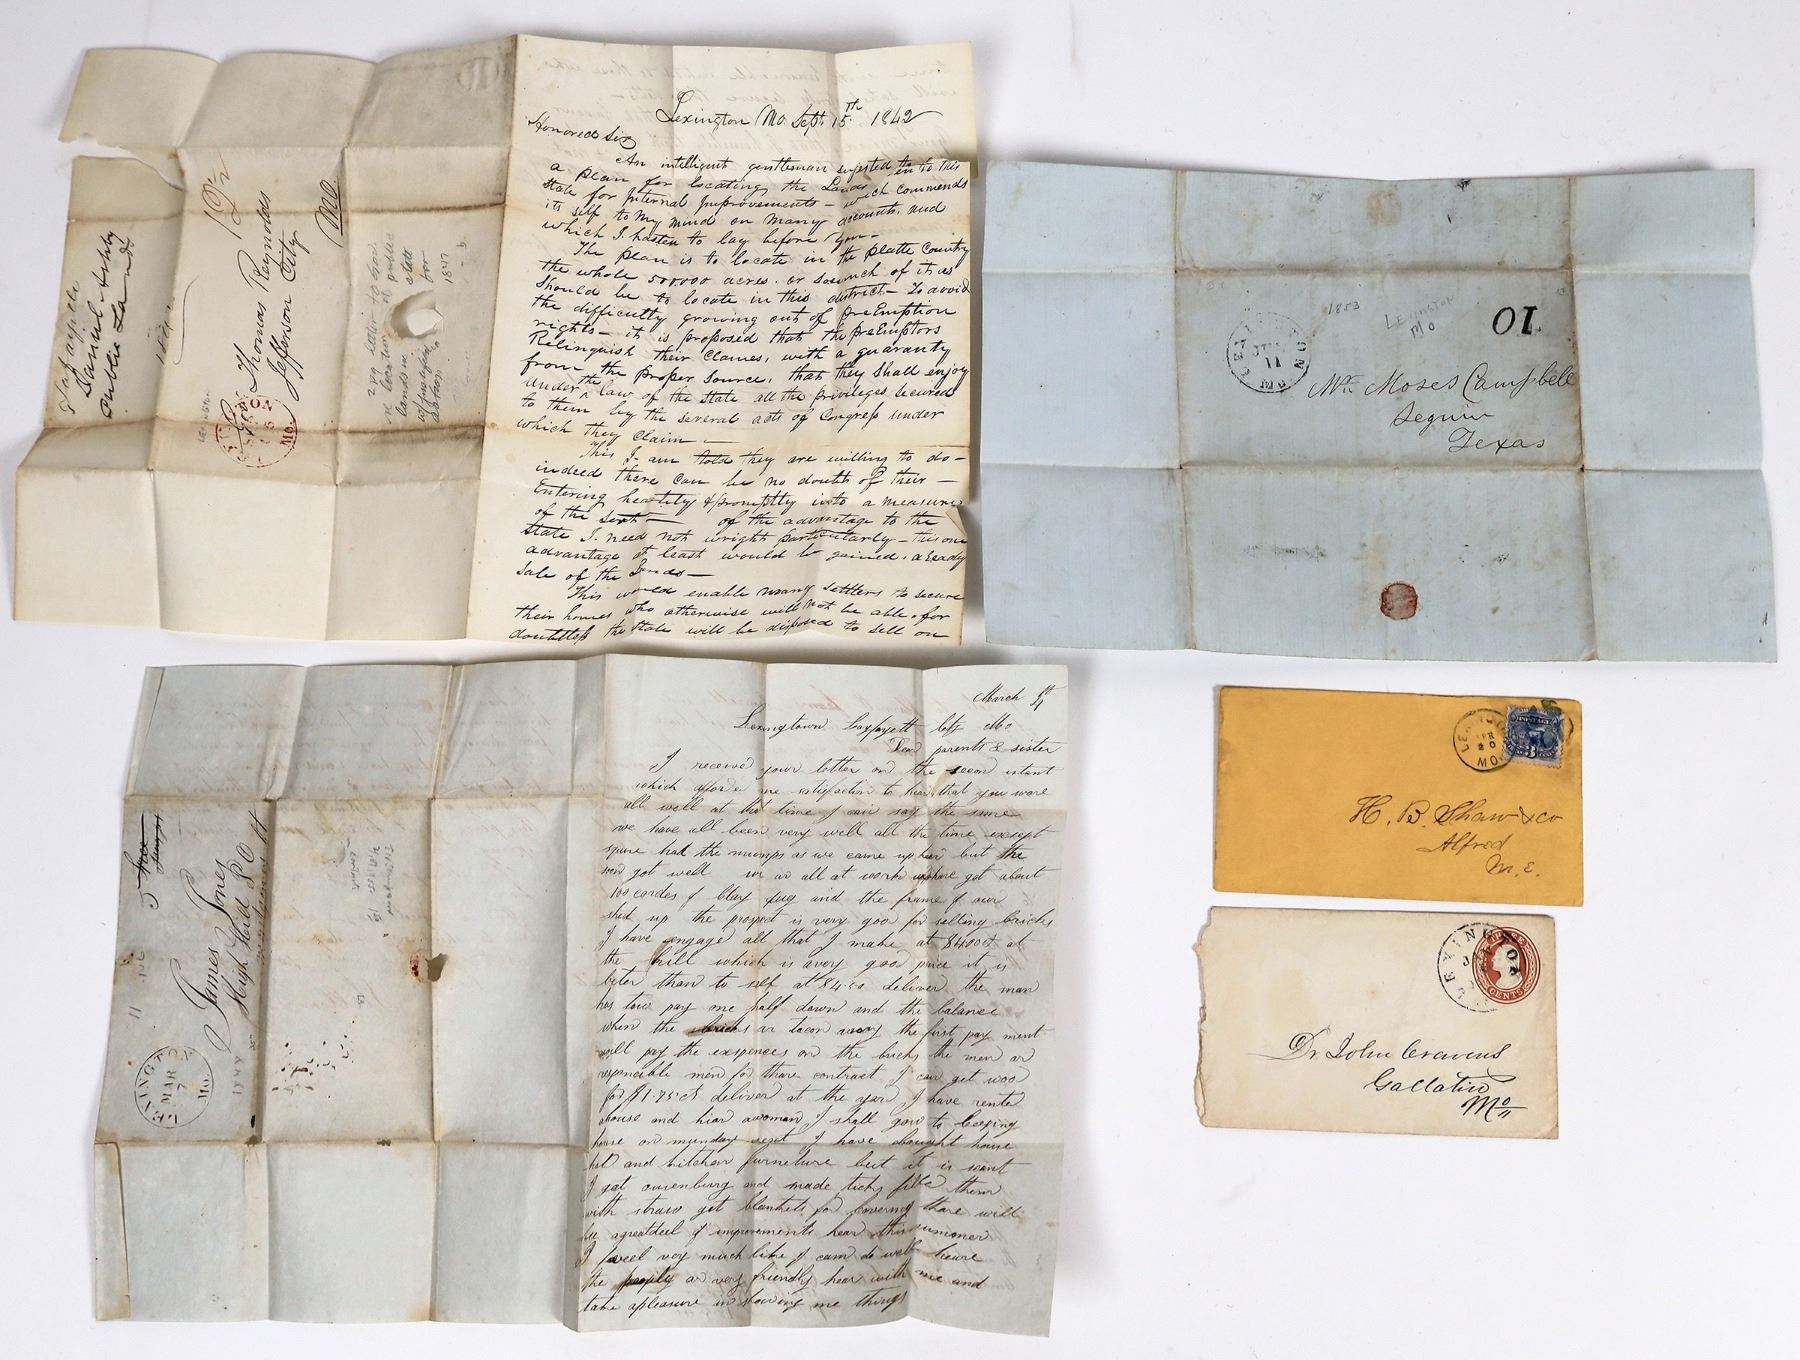 Lexington Mo. Sept. 15th 1842
Honored Sir
An intelligent gentleman sugested to this
a plan for locating the Lands
State for Internal Improvements – which commends
its self to my mind on many accounts, and
which I hasten to lay before you –
The plan is to locate in the platte Country
the whole 500,000 acres. or so much of it as
should be to locate in this district – To avoid
the difficulty growing out of preEmption
rights – it is proposed that the preEmptors
Relinquish their claimes, with a guaranty
from the proper source, that they shall enjoy
under the Law of the State all the privileges secured
to them by the several acts of Congress under
which they claim –
This I am told they are willing to do –
indeed there can be no doubt of their –
Entering heartily & promptly into a measure
of the sort – of the advantage to the
State I need not wright particularly – this one
advantage at least would be gained. a ready
sale of the Lands –
This would enable many settlers to secure
their homes who otherwise will not be able. for
doubtless the State will be disposed to sell on
Daniel Ashby
Public Lands
18 1/2
Thomas Reynolds
Jefferson City
Mo.
289 letter to Gov.
re location of public
lands in state
1847
LEXINGTON
Mo.
1853
LEXINGTON
MO
10
LEXINGTON
11
MO
Mr. Moses Campbell
Seguin
Texas
March 4th
Lexingtown Lafayett Cty Mo
Dear parents & sister
I receive your letter on the secon instant
which afford me satisfaction to hear that you ware
all well at that time I can say the same
we have all been very well all the time except
squire had the mumps as we came up hear but the
soon got well we ar all at work we have got about
100 cordes of Clay dug and the frame of our
shed up the prospect is very goo for selling bricks
I have engage all that I make at $4.00 at
the kill which is a very goo price it is
beter than to self at deliver the man
has tow pay me half down and the balance
when the bricks ar tacon away the first pay ment
will pay the expences on the bricks the men ar
responcible men for thare contract I can get woo
for $1.75 ct deliver at the yar I have rente
a house and hiar a woman I shall gow to keeping
house on munday next I have bought house
hol and kitchen furneture but it is scant
I got and made ticks fille them
with straw got blankets for covering thare will
be a greatdeel of improvements hear this summer
I feel very much like I cam do well heare
the people ar very friendly hear with me and
take a pleasure in showing me things
5
James Jones
High Hill P O
LEXINGTON
MAR
7
Mo.
LEXINGTON
APR
20
MO
POSTAGE
3
H. B. Shaw & Co
Alfred
M. E.
LEXINGTON
MO
THREE
CENTS
Dr. John Cravens
Gallatin
Mo